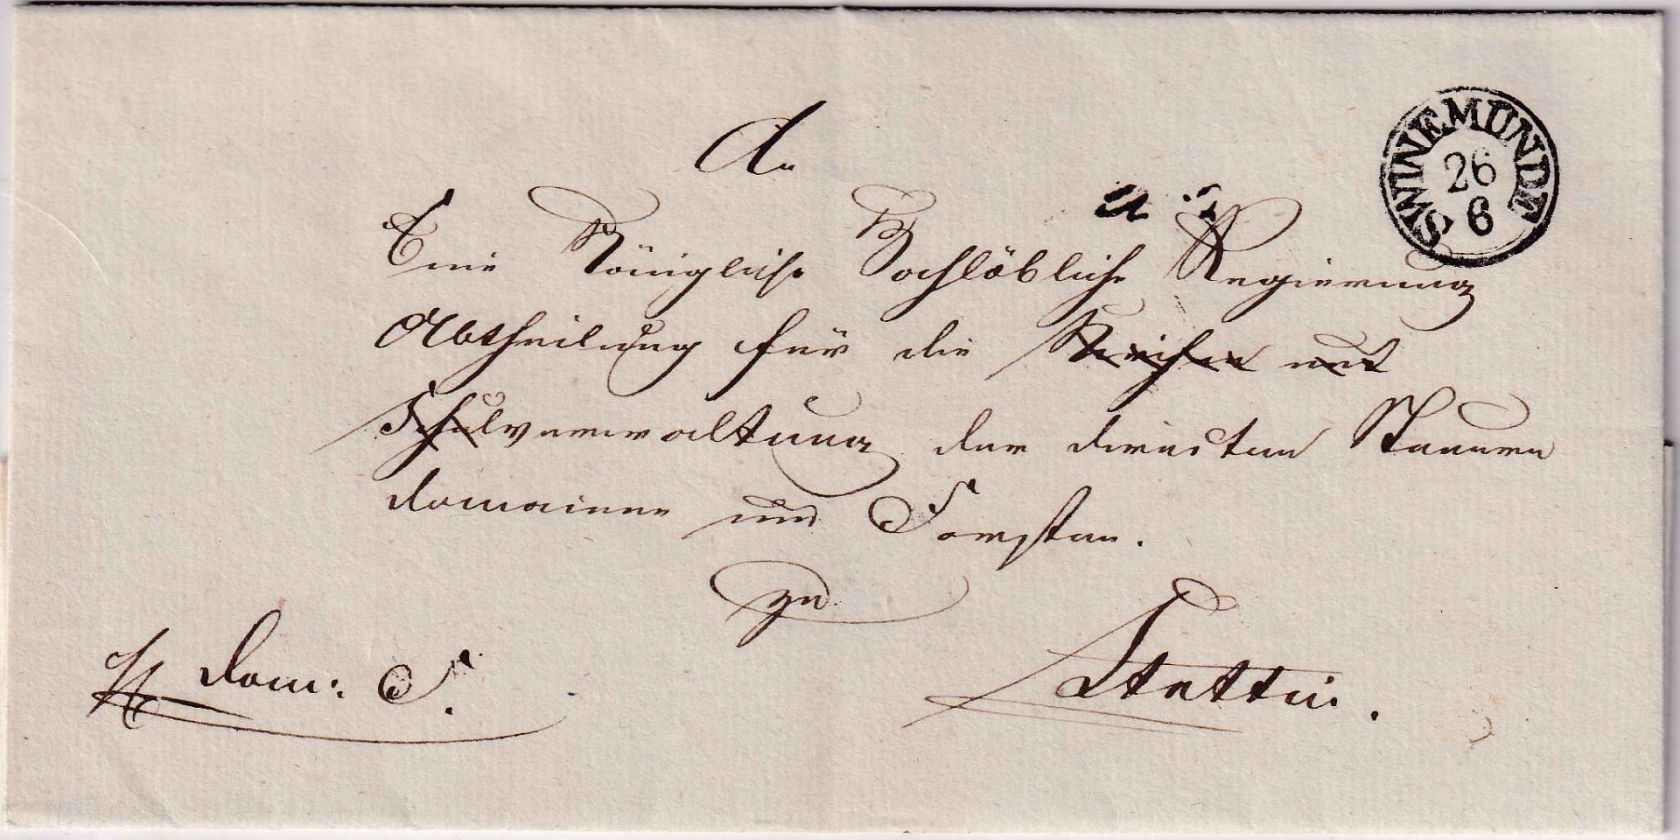 An
Eine Königliche Hochlöbliche Regierung
Abtheilung für die Kirchen und
Schulverwaltung der directen Steuern
Domainen und Forsten.
zu
Stettin.
Dom: S.
SWINEMÜNDE
26
6